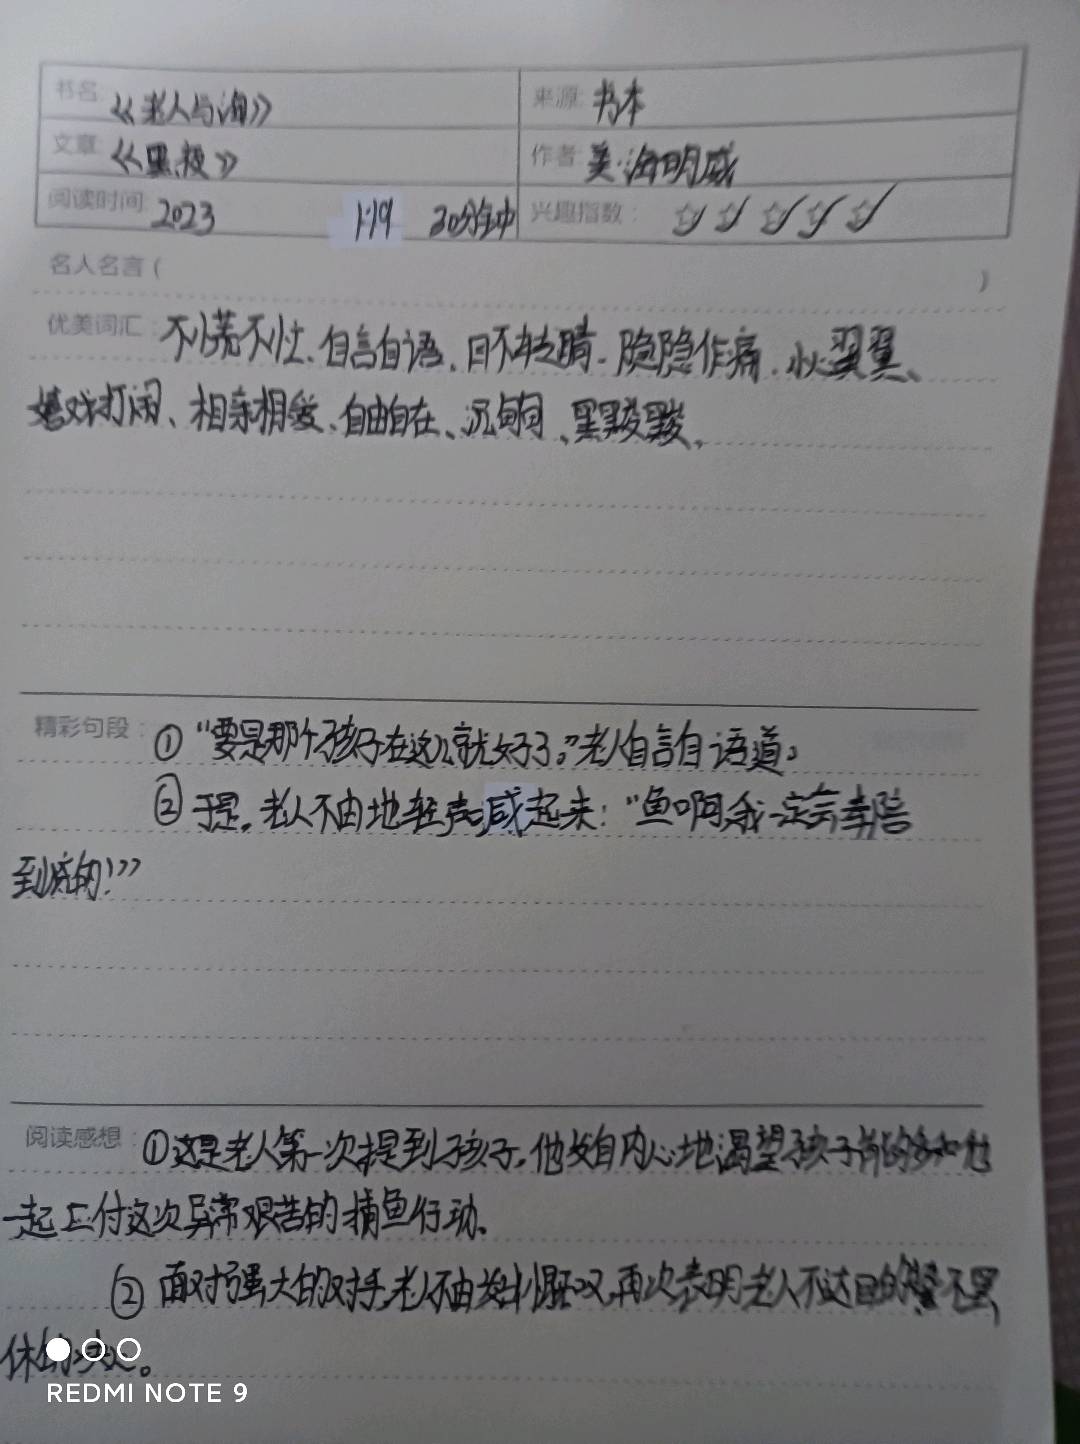 书名 《老人与海》 来源: 书本
文章 《黑夜》 作者: 美·海明威
阅读时间: 2023 1:19 30分钟 兴趣指数: ☆ ☆ ☆ ☆ ☆
名人名言 ( )
优美词汇: 不慌不忙、自言自语、目不转睛、隐隐作痛、小心翼翼、
嬉戏打闹、相亲相爱、自由自在、沉甸甸、黑黢黢、
精彩句段: ①“要是那个孩子在这儿就好了。”老人自言自语道。
②于是,老人不由地轻声喊起来:“鱼啊,我一定会奉陪
到底的!”
阅读感想: ①这是老人第一次提到孩子,他发自内心地渴望孩子能够和他
一起应付这次异常艰苦的捕鱼行动。
②面对强大的对手,老人不由发出慨叹,再次表明老人不达目的誓不罢
休的决心。
REDMI NOTE 9